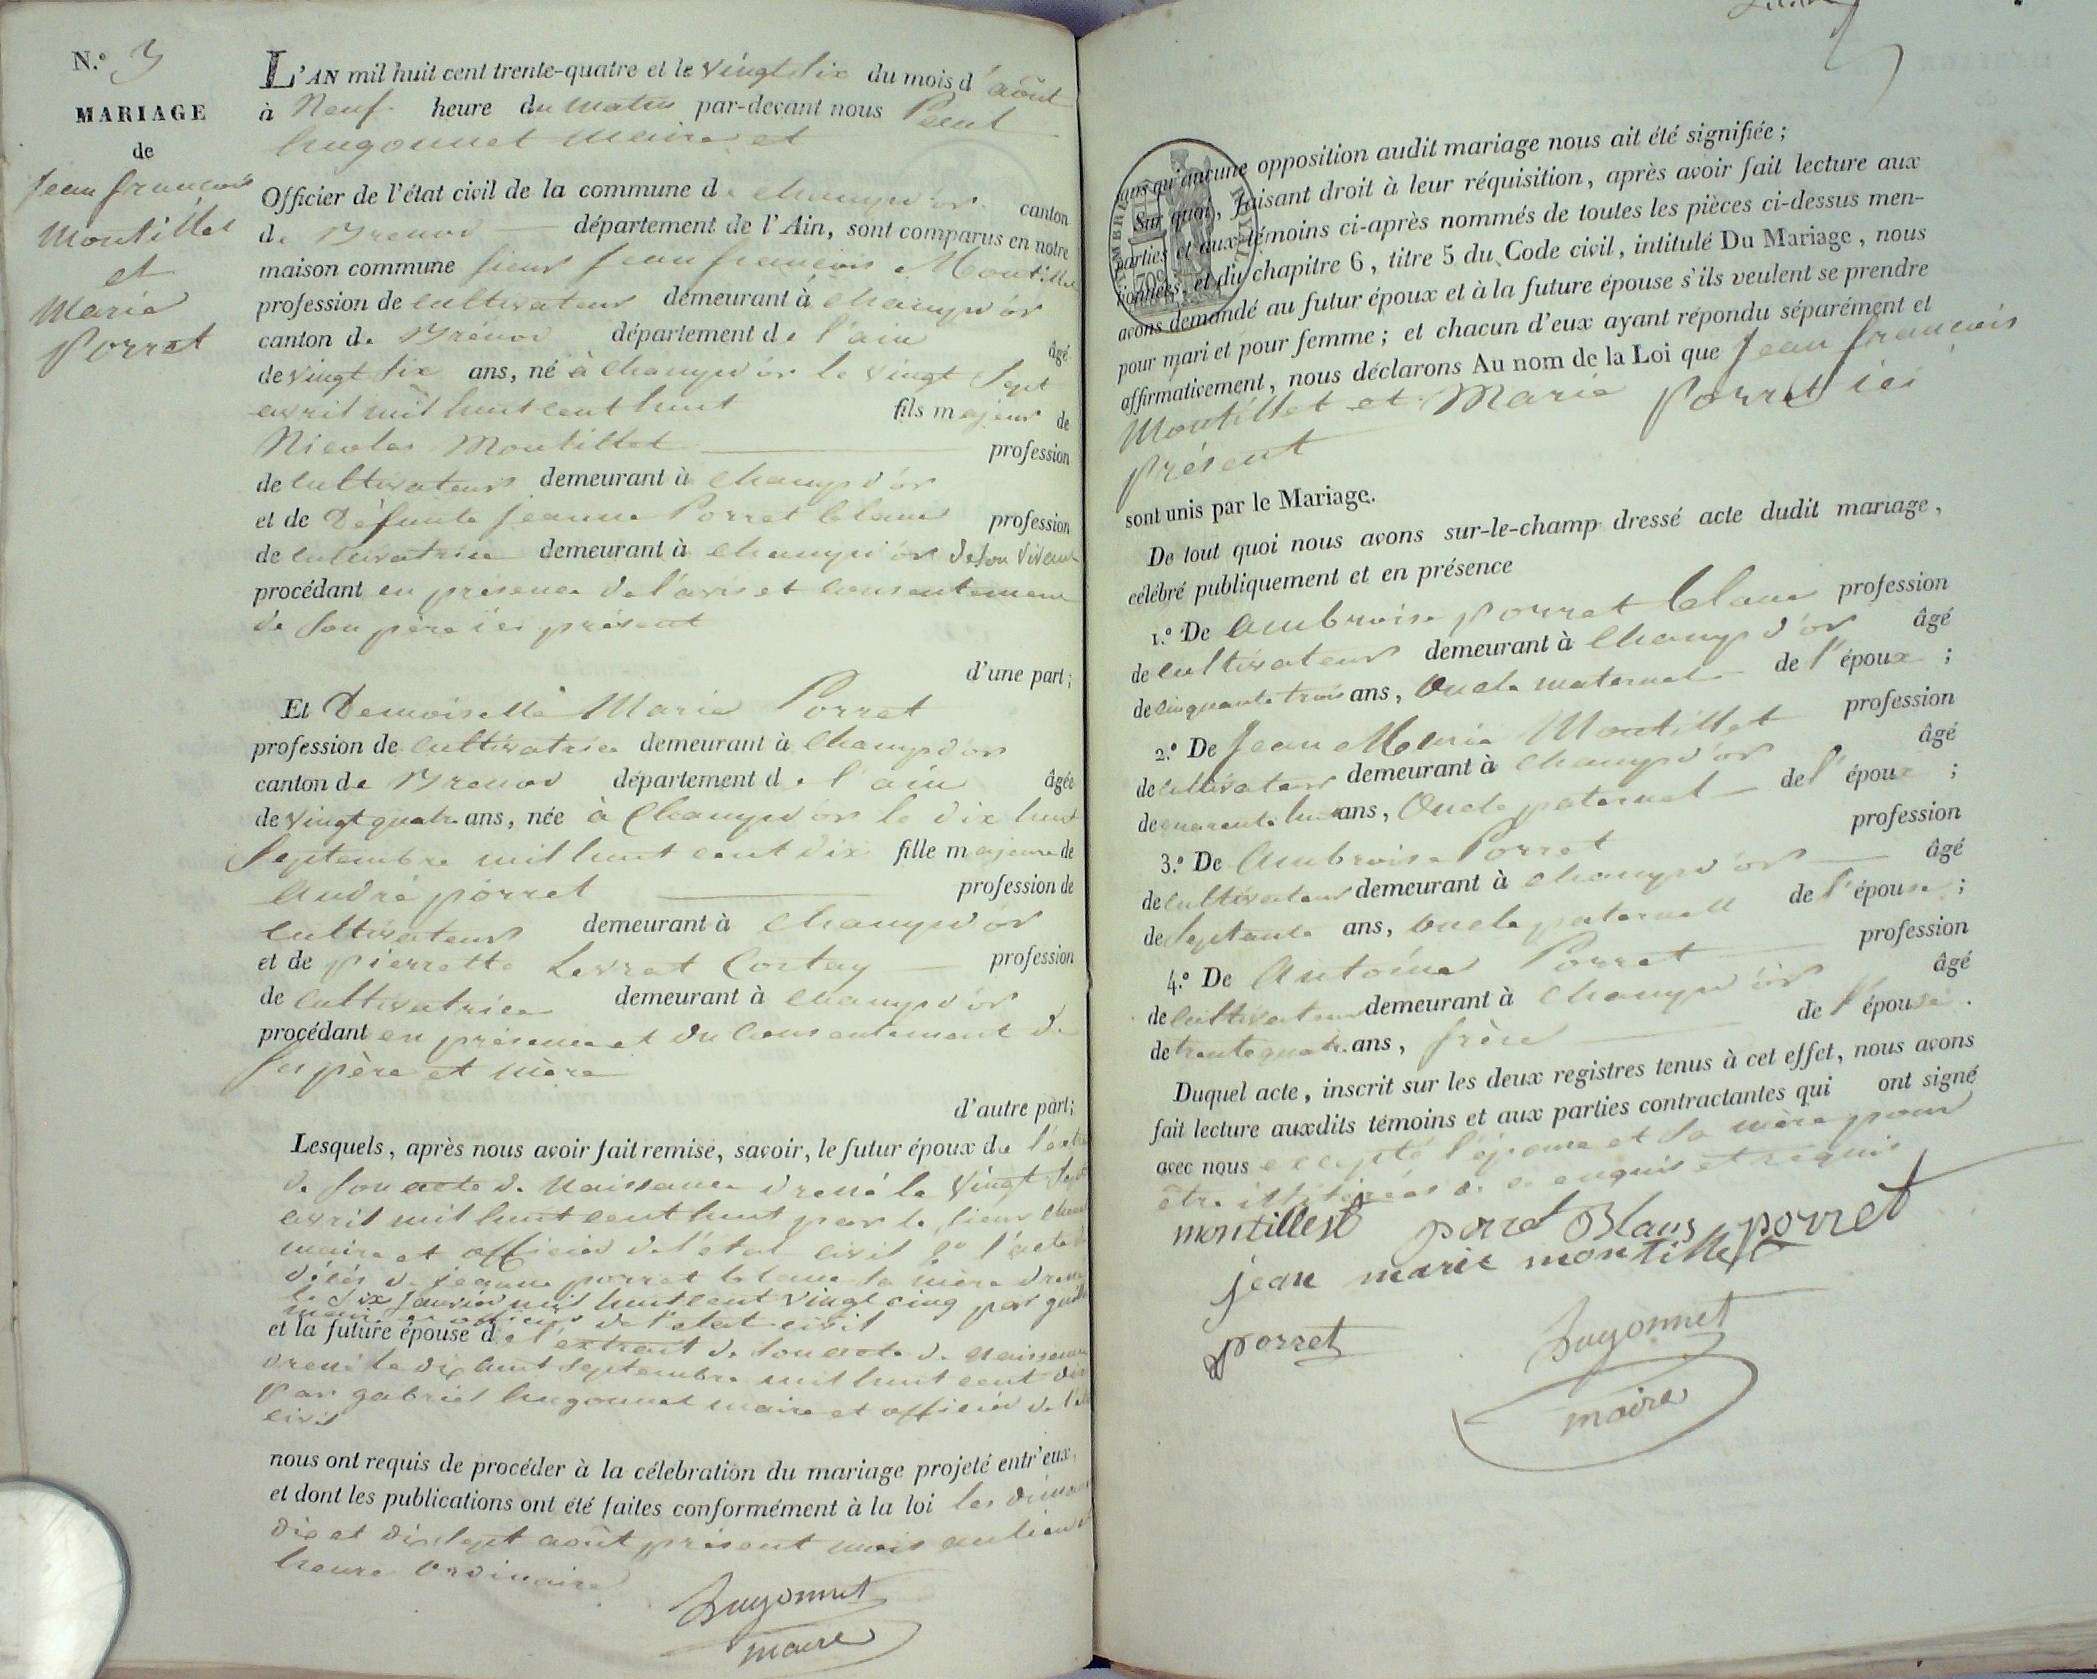 N.° 3
MARIAGE
de
Jean françois
Montillet
et
Marie
Porret
L'AN mil huit cent trente-quatre et le vingt six du mois d'août
à Neuf heure du matin par-devant nous
hugonnet maire et
Officier de l'état civil de la commune de champd'or canton
de Brenod département de l'Ain, sont comparus en notre
maison commune sieur Jean françois Montillet
profession de cultivateur demeurant à champd'or
canton de Brénod département de l'ain âgé
de vingt six ans, né à champd'or le vingt sept
avril mil huit cent huit fils majeur de
Nicolas Montillet profession
de cultivateur demeurant à champd'or
et de Défunte jeanne Porret blanc profession
de cultivatrice demeurant à champd'or de son vivant
procédant en présence de l'avis et consentement
de son père ici présent
d'une part;
Et Demoiselle Marie Porret
profession de cultivatrice demeurant à champd'or
canton de Brenod département de l'ain âgée
de vingt quatre ans, née à Champd'or le dix huit
Septembre mil huit cent dix fille majeure de
andré porret profession de
cultivateur demeurant à champd'or
et de pierrette Levrat Cortay profession
de cultivatrice demeurant à champd'or
procédant en présence et du consentement de
ses père et mère
d'autre part;
Lesquels, après nous avoir fait remise, savoir, le futur époux de
de son acte de Naissance dressé le vingt sept
avril mil huit cent huit par le sieur
maire et officier de l'état civil 2° l'acte
décès de jeanne porret blanc sa mère
le dix janvier mil huit cent vingt cinq par
maire et officier de l'état civil
et la future épouse de l'extrait de son acte de naissance
dressé le dix huit septembre mil huit cent dix
par gabriel hugonnet maire et officier de
civil
nous ont requis de procéder à la célebration du mariage projeté entr'eux,
et dont les publications ont été faites conformément à la loi les
dix et dix sept août présent mois au lieu et
heure ordinaire
hugonnet
maire
sans qu'aucune opposition audit mariage nous ait été signifiée;
Sur quoi, faisant droit à leur réquisition, après avoir fait lecture aux
parties et aux témoins ci-après nommés de toutes les pièces ci-dessus men-
tionnées, et du chapitre 6, titre 5 du Code civil, intitulé Du Mariage, nous
avons demandé au futur époux et à la future épouse s'ils veulent se prendre
pour mari et pour femme; et chacun d'eux ayant répondu séparément et
affirmativement, nous déclarons Au nom de la Loi que Jean françois
Montillet et Marie Porret ici
présent
sont unis par le Mariage.
De tout quoi nous avons sur-le-champ dressé acte dudit mariage,
célébré publiquement et en présence
1.° De ambroise porret blanc profession
de cultivateur demeurant à Champd'or âgé
de cinquante trois ans, Oncle maternel de l'époux;
2.° De Jean Marie Montillet profession
de cultivateur demeurant à champd'or âgé
de quarante huit ans, Oncle paternel de l'époux;
3.° De ambroise Porret profession
de cultivateur demeurant à champd'or âgé
de septante ans, oncle paternell de l'épouse;
4.° De antoine Porret profession
de cultivateur demeurant à champd'or âgé
de trente quatre ans, frère de l'épouse.
Duquel acte, inscrit sur les deux registres tenus à cet effet, nous avons
fait lecture auxdits témoins et aux parties contractantes qui ont signé
avec nous excepté l'épouse et sa mère pour
être illitérées de ce enquis et requis
montillest porret Blans porret
jean marie montillet
porret
hugonnet
maire